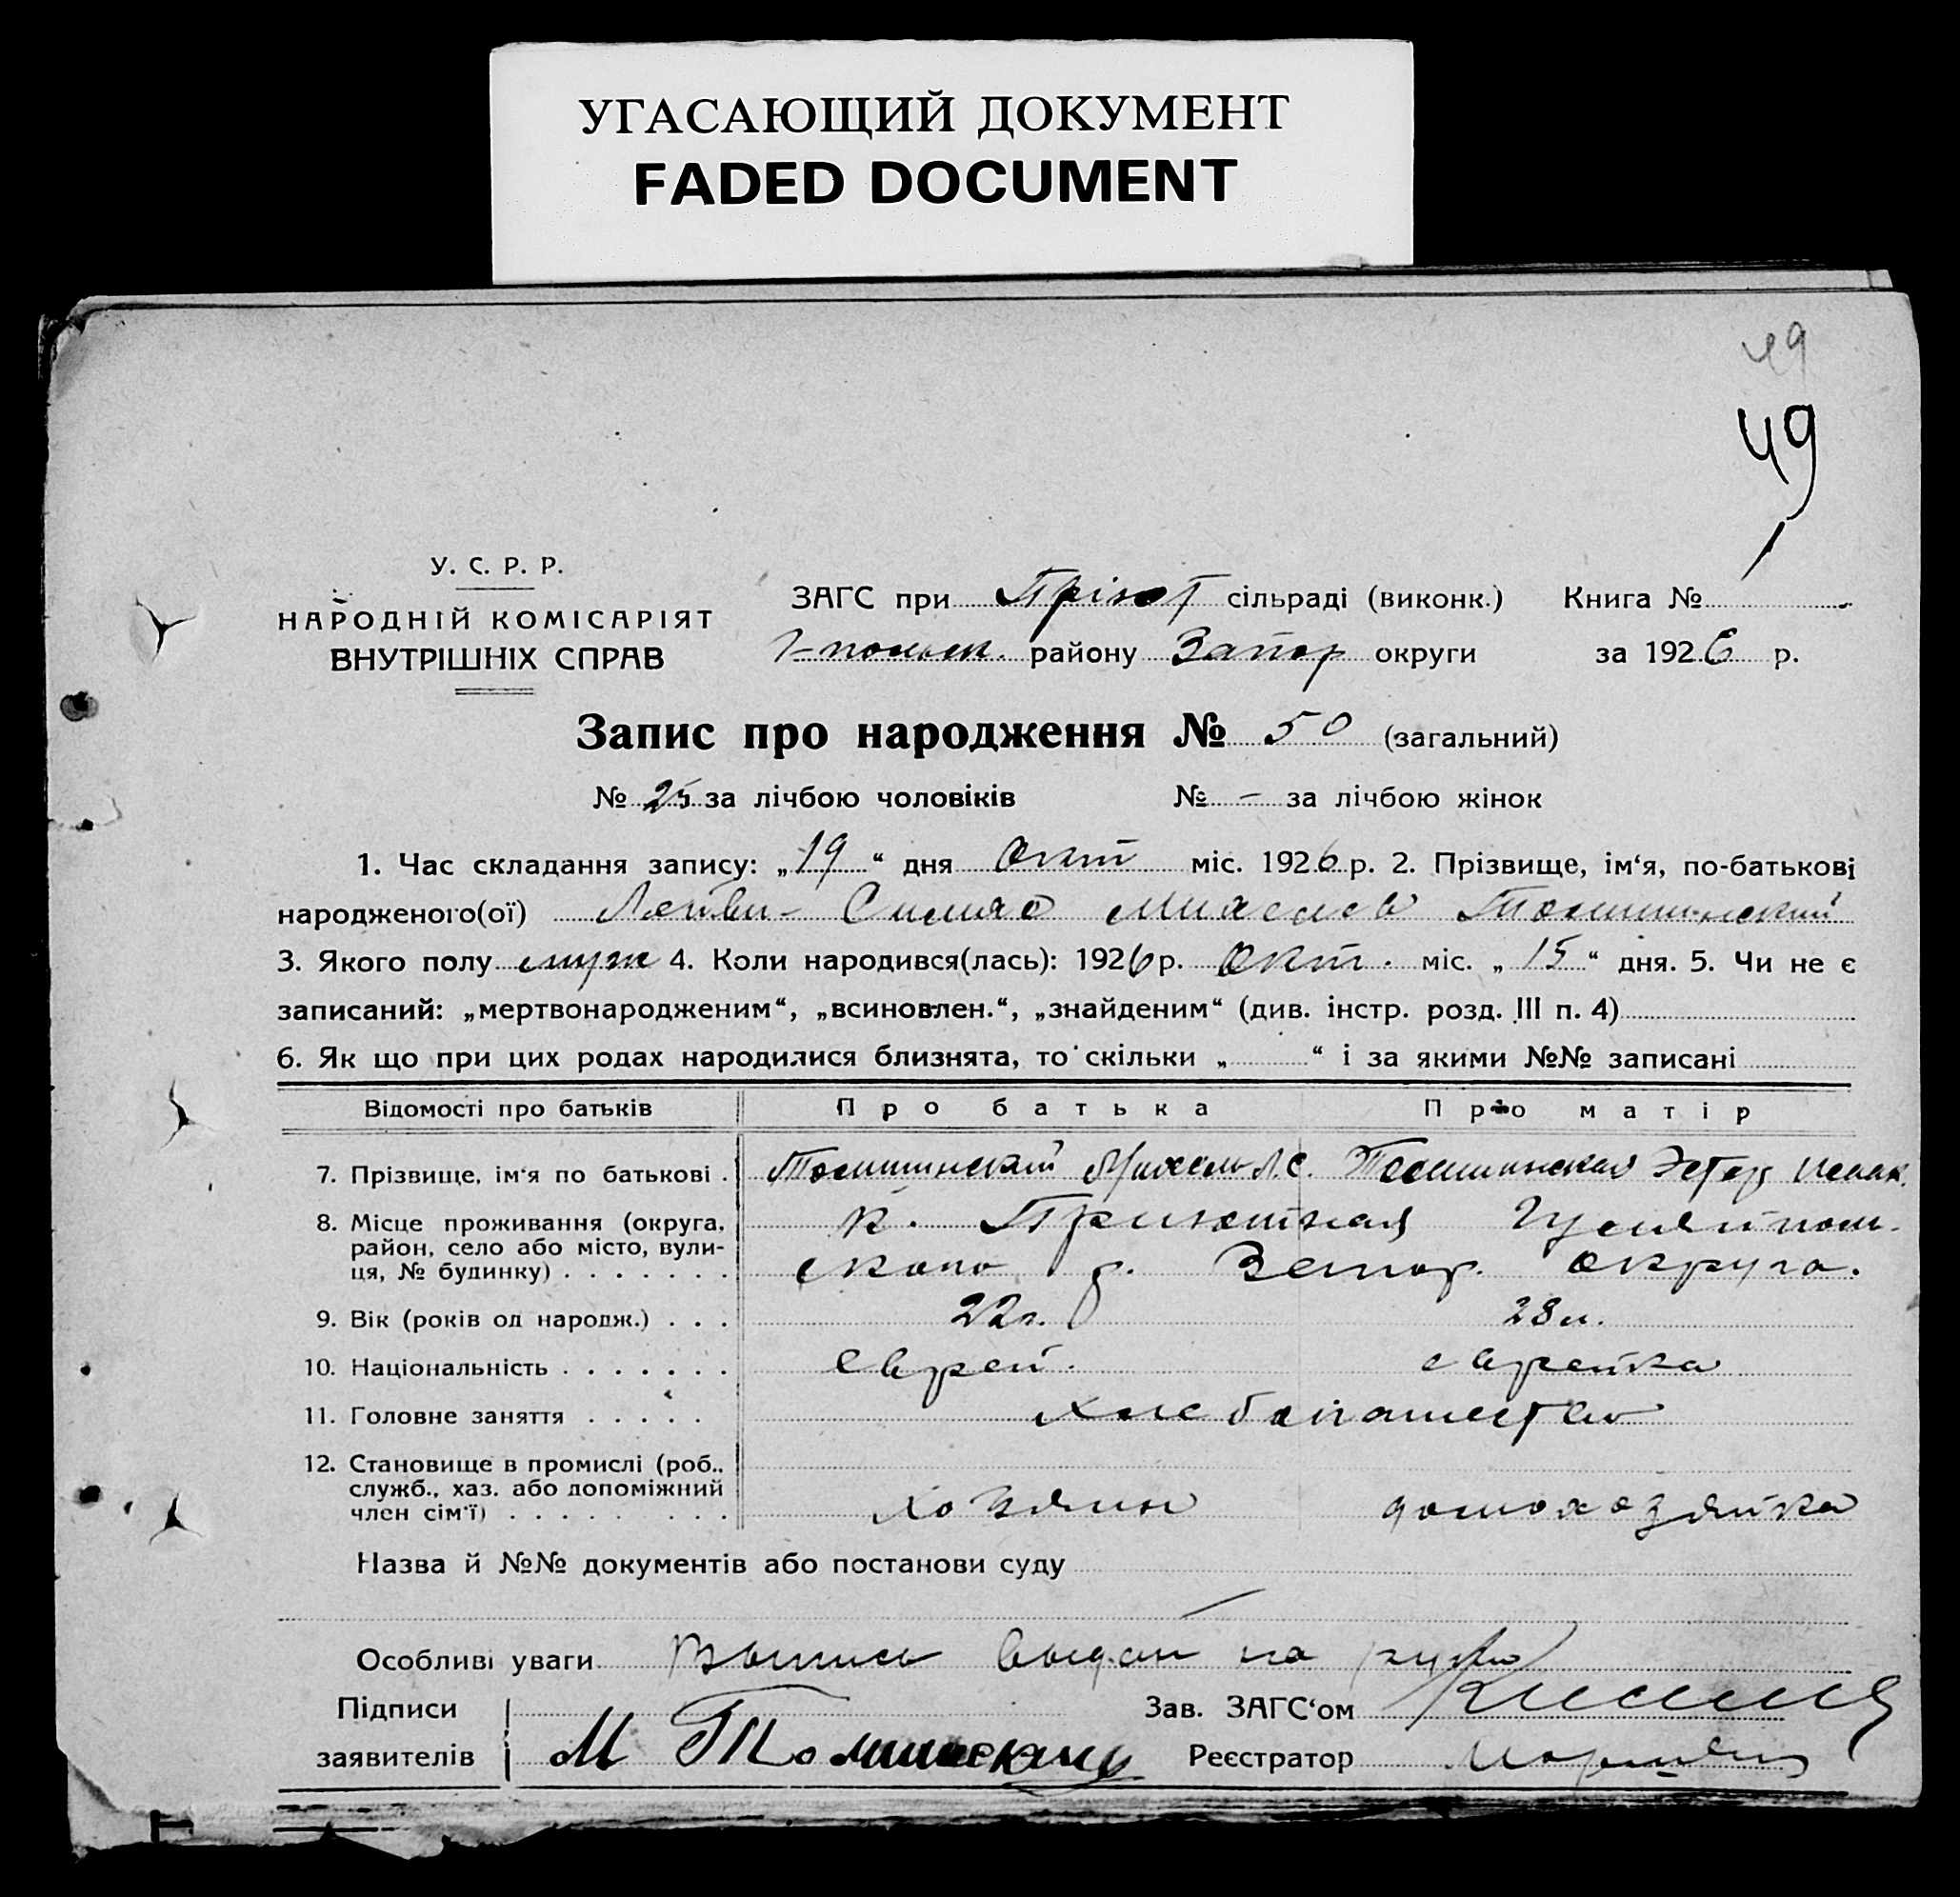 УГАСАЮЩИЙ ДОКУМЕНТ
FADED DOCUMENT
49
49
У. С. Р. Р.
НАРОДНІЙ КОМІСАРІЯТ
ВНУТРІШНІХ СПРАВ
ЗАГС при Пріют сільраді (виконк.) Книга №
району Запор округи за 1926 р.
Запис про народження № 50 (загальний)
№ 25 за лічбою чоловіків № – за лічбою жінок
1. Час складання запису: „19“ дня Окт міс. 1926 р. 2. Прізвище, ім‘я, по-батькові
народженого(ої) Лейви-
3. Якого полу муж 4. Коли народився(лась): 1926 р. Окт. міс. „15“ дня. 5. Чи не є
записаний: „мертвонародженим“, „всиновлен.“, „знайденим“ (див. інстр. розд. III п. 4)
6. Як що при цих родах народилися близнята, то скільки „ “ і за якими №№ записані
Відомості про батьків Про батька Про матір
7. Прізвище, ім‘я по батькові . Л.С. Эстер Исаак.
8. Місце проживання (округа, к. Приютная Гуляйполь-
район, село або місто, вули- ского р. Запор. округа.
ця, № будинку) . . . . . . .
9. Вік (років од народж.) . . . 22л. 28л.
10. Національність . . . . . . . еврей. еврейка
11. Головне заняття . . . . . хлебопашество
12. Становище в промислі (роб.,
служб., хаз. або допоміжний
член сім‘ї) . . . . . . . . хозяин домохозяйка
Назва й №№ документів або постанови суду
Особливі уваги Выпись выдан на руки
Підписи Зав. ЗАГС‘ом
заявителів М Реєстратор